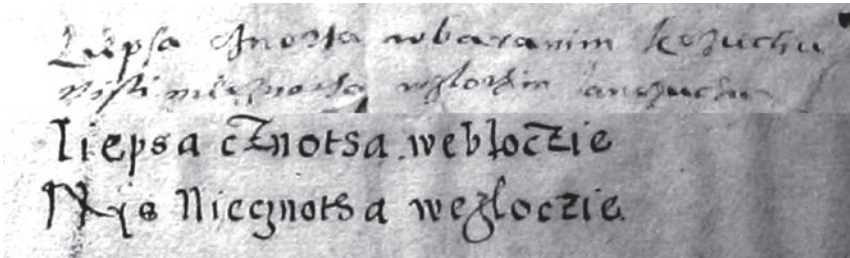 Liepsa cznotsa wbaranim kozuchu
Nisti niecznotsa wzlotim lanczuchu
liepsa cznotsa webloczie
Nys Niecznotsa wezloczie